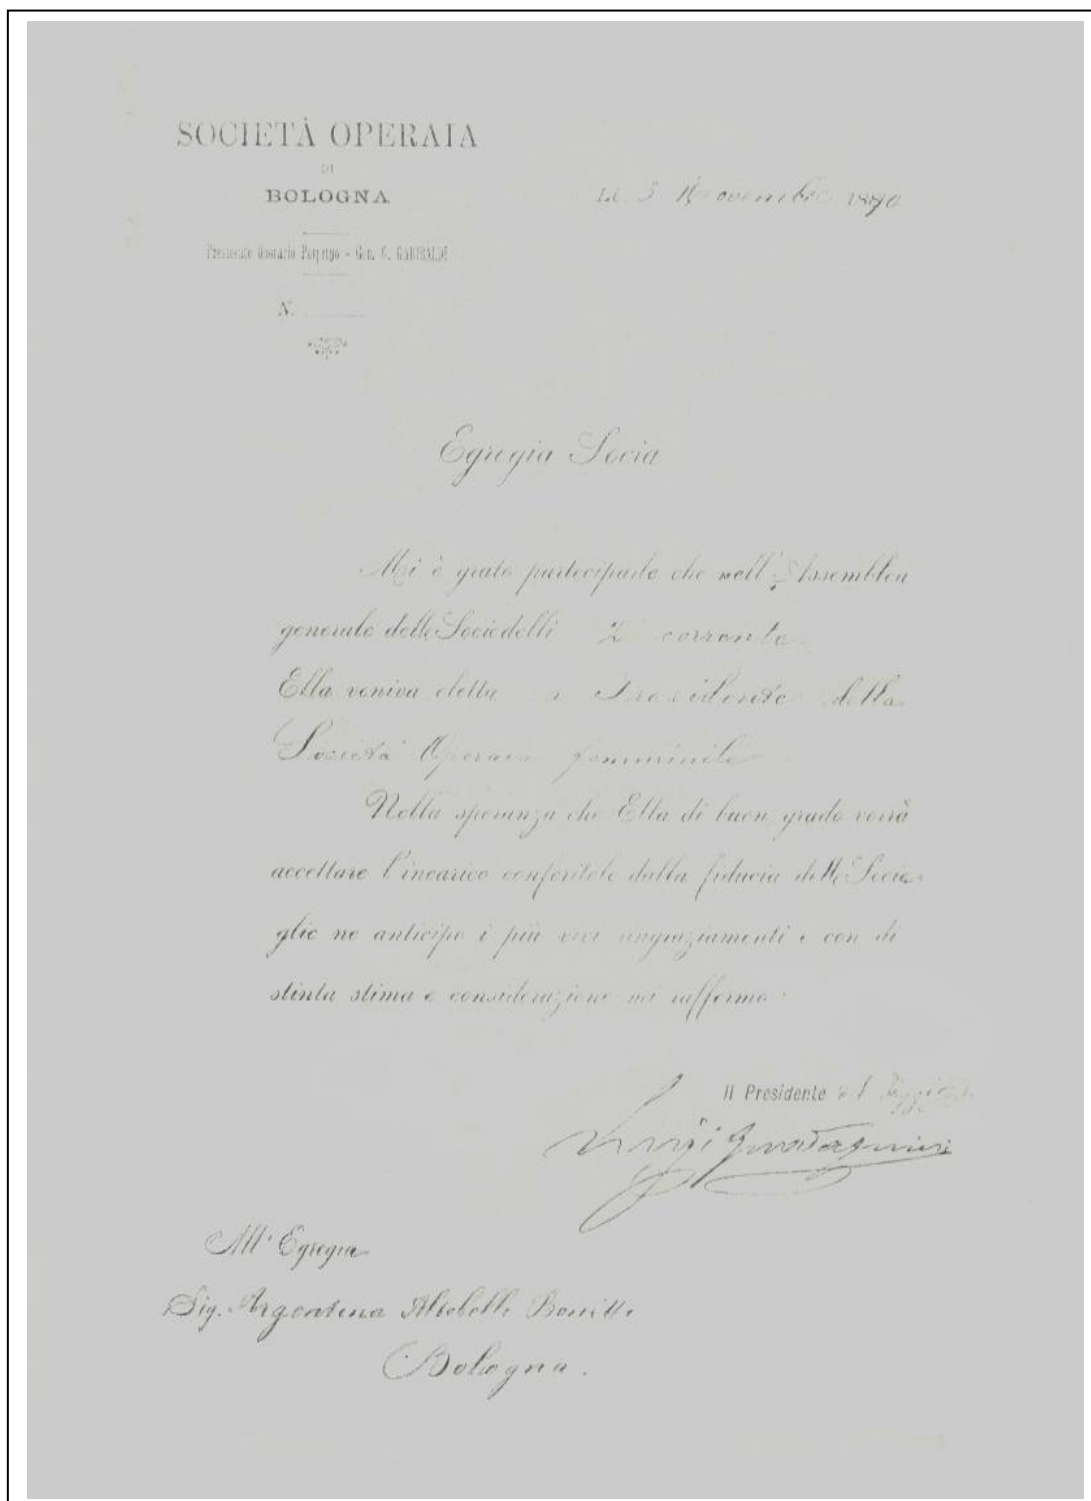 SOCIETÀ OPERAIA
DI
BOLOGNA
Li 3 Novembre 1890
Presidente Onorario Perpetuo - Gen. G. GARIBALDI
N.
Egregia Socia
Mi è grato parteciparle che nell'Assemblea
generale delle Socie delli 2 corrente
Ella veniva eletta a Presidente della
Società Operaia femminile
Nella speranza che Ella di buon grado vorrà
accettare l'incarico conferitole dalla fiducia delle Socie
glie ne anticipo i più vivi ringraziamenti e con di
stinta stima e considerazione mi raffermo
Il Presidente
Luigi Guadagnini
All' Egregia
Sig. Argentina Altobelli Bonetti
Bologna.